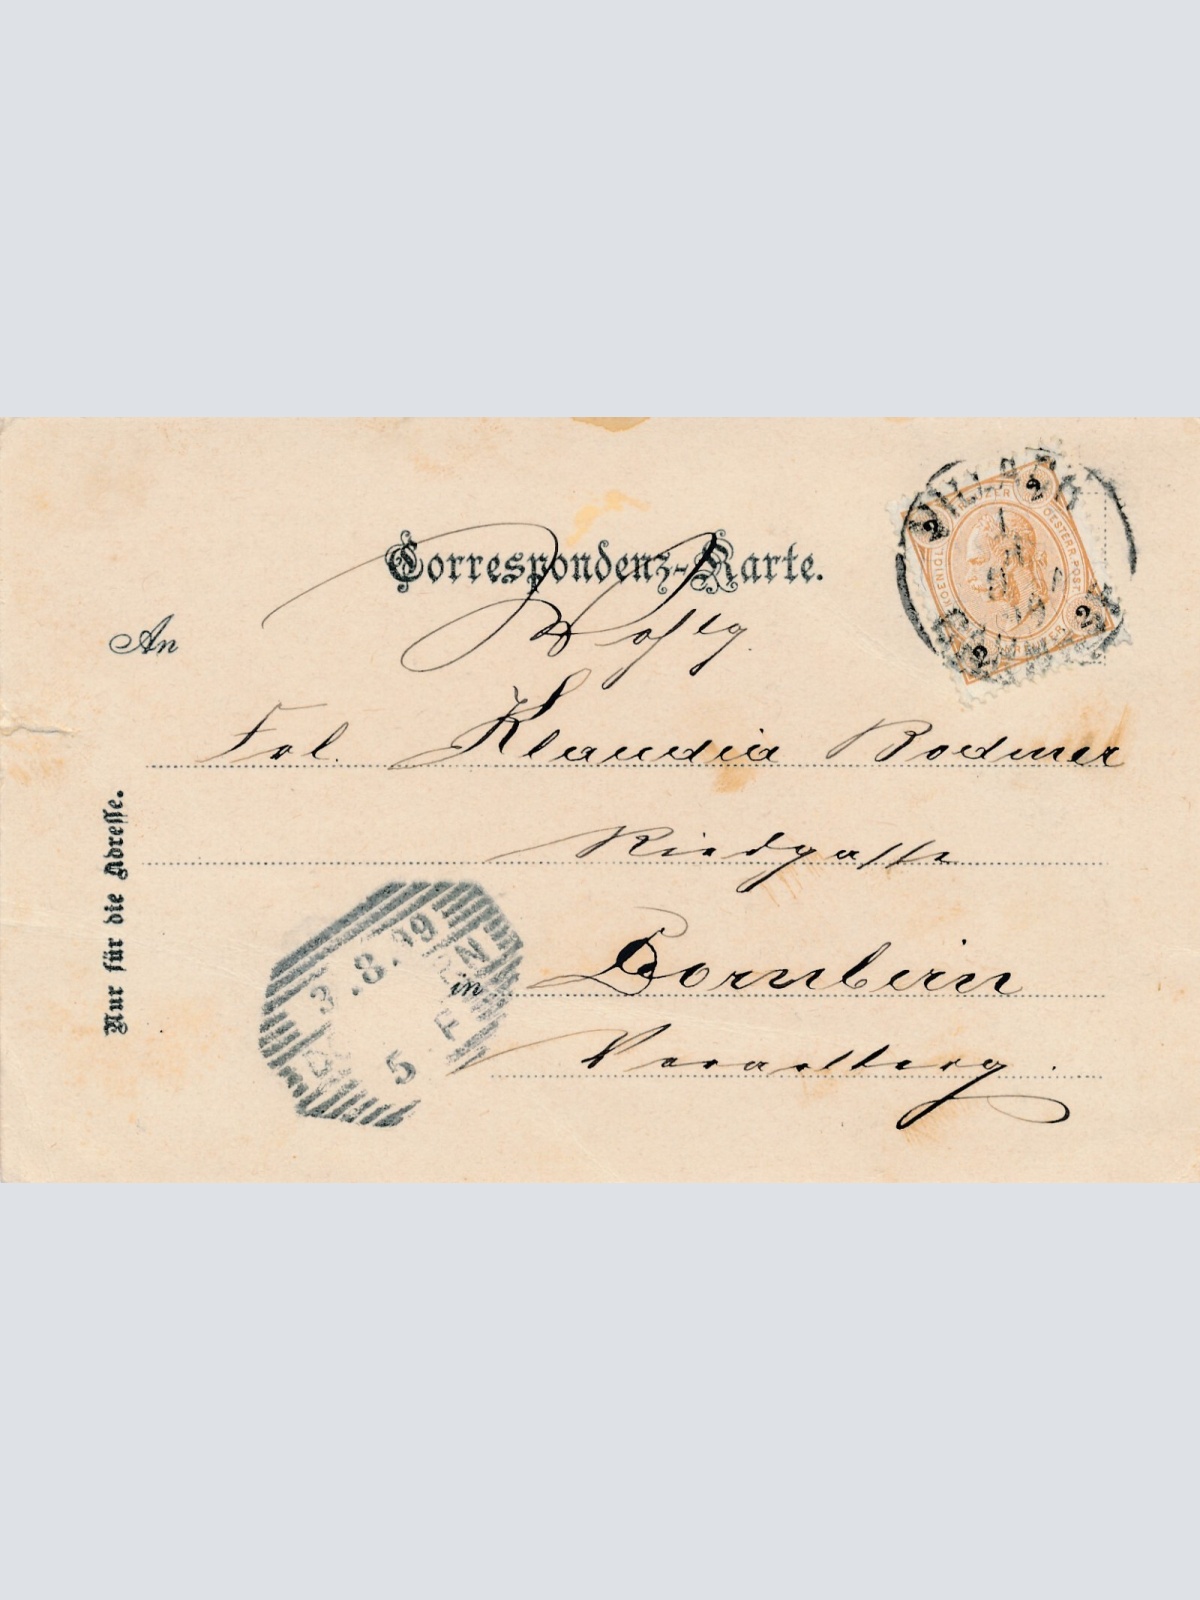 Correspondenz-Karte.
An
Wohlg.
Frl. Klaudia Bodmer
Riedgasse
in Dornbirn
Vorarlberg.
Nur für die Adresse.
VILLACH
2 2 2 2
KREUZER
OESTERR. POST
3.8.99
5 F